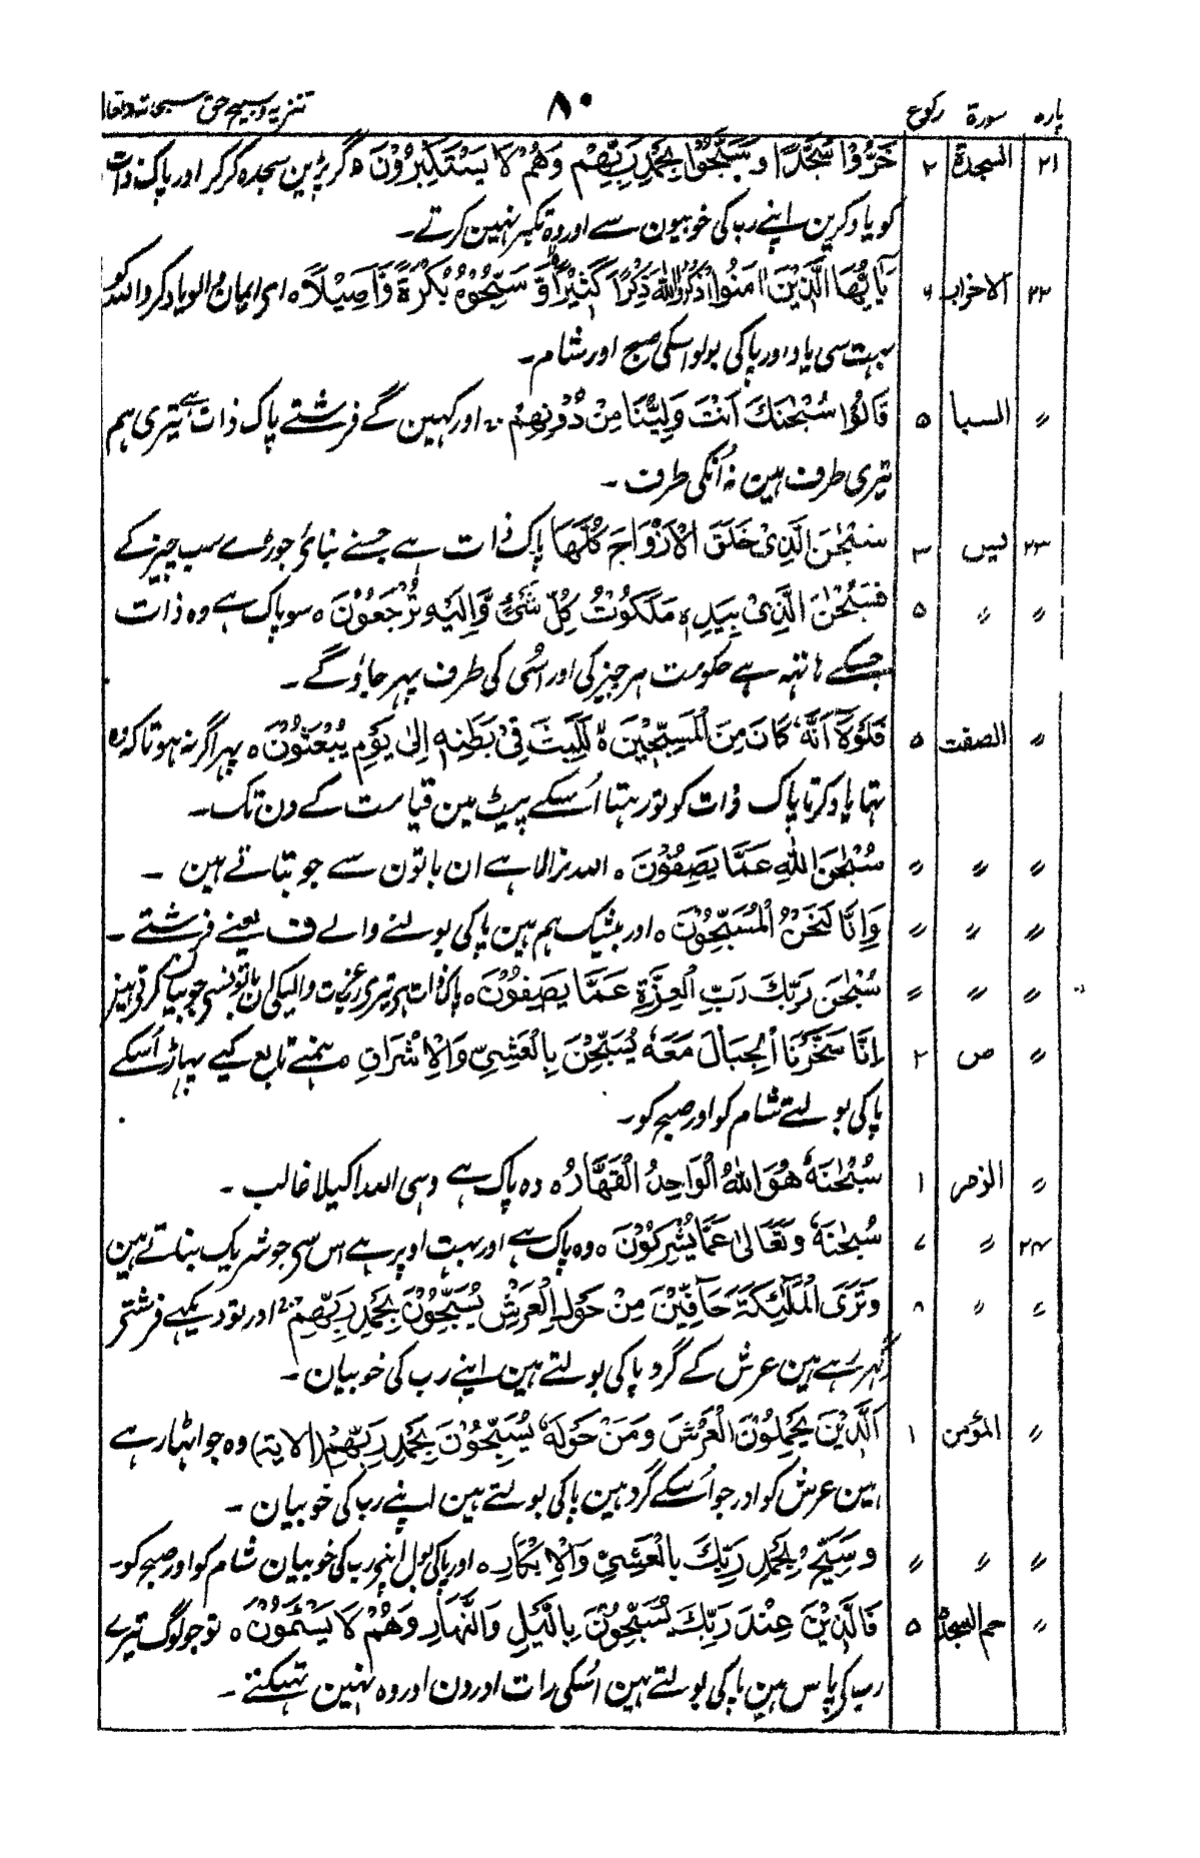 پارہ سورۃ رکوع ۸۰ تنزیہ وتسبیح حق سبحانہ وتعالیٰ
۲۱ السجدۃ ۲ خَرُّوْا سُجَّدًا وَّسَبَّحُوْا بِحَمْدِ رَبِّهِمْ وَهُمْ لَا يَسْتَكْبِرُوْنَ ہ گر پڑین سجدہ کر کر اور پاک ذات
کو یاد کرین اپنے رب کی خوبیون سے اور وہ تکبر نہین کرتے۔
۲۲ الاحزاب ۶ يٰٓاَيُّهَا الَّذِيْنَ اٰمَنُوا اذْكُرُوا اللّٰهَ ذِكْرًا كَثِيْرًا وَّ سَبِّحُوْهُ بُكْرَةً وَّاَصِيْلًا ہ ای ایمان والو یاد کرو اللہ کو
بہت سی یاد اور پاکی بولو اسکی صبح اور شام۔
〃 السبا ۵ قَالُوْا سُبْحٰنَكَ اَنْتَ وَلِيُّنَا مِنْ دُوْنِهِمْ اور کہین گے فرشتے پاک ذات ہے تیری ہم
تیری طرف ہین نہ اُنکی طرف ۔
۲۳ یٰس ۳ سُبْحٰنَ الَّذِىْ خَلَقَ الْاَزْوَاجَ كُلَّهَا پاک ذات ہے جسنے بنائے جوڑے سب چیز کے
〃 〃 ۵ فَسُبْحٰنَ الَّذِىْ بِيَدِهٖ مَلَكُوْتُ كُلِّ شَىْءٍ وَّاِلَيْهِ تُرْجَعُوْنَ ہ سو پاک ہے وہ ذات
جسکے ہاتہہ ہے حکومت ہر چیز کی اور اُسی کی طرف پہر جاؤ گے ۔
〃 الصفت ۵ فَلَوْلَآ اَنَّهٗ كَانَ مِنَ الْمُسَبِّحِيْنَ ہ لَلَبِثَ فِىْ بَطْنِهٖ اِلٰى يَوْمِ يُبْعَثُوْنَ ہ پہر اگر نہ ہوتا کہ وہ
تہا یاد کرتا پاک ذات کو تو رہتا اُسکے پیٹ مین قیامت کے دن تک۔
〃 〃 〃 سُبْحٰنَ اللّٰهِ عَمَّا يَصِفُوْنَ ہ اللہ نرالا ہے ان باتون سے جو بتاتے ہین ۔
〃 〃 〃 وَاِنَّا لَنَحْنُ الْمُسَبِّحُوْنَ ہ اور بیشک ہم ہین پاکی بولنے والے ف یعنے فرشتے ۔
〃 〃 〃 سُبْحٰنَ رَبِّكَ رَبِّ الْعِزَّةِ عَمَّا يَصِفُوْنَ ہ پاک ذات ہے تیرے رب عزت والیکی ان باتونسے جو بیان کرتے ہین
〃 ص ۲ اِنَّا سَخَّرْنَا الْجِبَالَ مَعَهٗ يُسَبِّحْنَ بِالْعَشِىِّ وَالْاِشْرَاقِ ہ ہمنے تابع کیے پہاڑ اُسکے
پاکی بولتے شام کو اور صبح کو۔
〃 الزمر ۱ سُبْحٰنَهٗ هُوَ اللّٰهُ الْوَاحِدُ الْقَهَّارُ ہ وہ پاک ہے وہی اللہ اکیلا غالب ۔
۲۴ 〃 ۷ سُبْحٰنَهٗ وَتَعَالٰى عَمَّا يُشْرِكُوْنَ ہ وہ پاک ہے اور بہت اوپر ہے اس سے جو شریک بناتے ہین
〃 〃 ۸ وَتَرَى الْمَلٰٓئِكَةَ حَآفِّيْنَ مِنْ حَوْلِ الْعَرْشِ يُسَبِّحُوْنَ بِحَمْدِ رَبِّهِمْ اور تو دیکہے فرشتے
گہر رہے ہین عرش کے گرد پاکی بولتے ہین اپنے رب کی خوبیان ۔
〃 المؤمن ۱ اَلَّذِيْنَ يَحْمِلُوْنَ الْعَرْشَ وَمَنْ حَوْلَهٗ يُسَبِّحُوْنَ بِحَمْدِ رَبِّهِمْ (الایۃ) وہ جو اٹہا رہے
ہین عرش کو اور جو اُسکے گرد ہین پاکی بولتے ہین اپنے رب کی خوبیان ۔
〃 〃 〃 وَسَبِّحْ بِحَمْدِ رَبِّكَ بِالْعَشِىِّ وَالْاِبْكَارِ ہ اور پاکی بول اپنے رب کی خوبیان شام کو اور صبح کو۔
〃 حم السجدۃ ۵ فَالَّذِيْنَ عِنْدَ رَبِّكَ يُسَبِّحُوْنَ بِالَّيْلِ وَالنَّهَارِ وَهُمْ لَا يَسْئَمُوْنَ ہ تو جو لوگ تیرے
رب کے پاس ہین پاکی بولتے ہین اُسکی رات اور دن اور وہ نہین تہکتے ۔